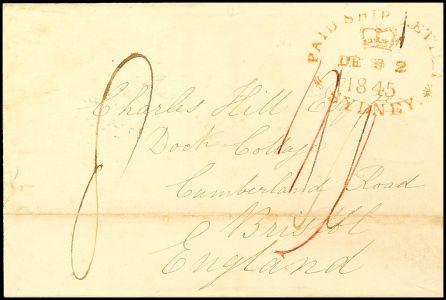 PAID SHIP LETTER
DE 2
1845
SYDNEY
Charles Hill Esq
Dock Cottage
Cumberland Road
Bristol
England
8